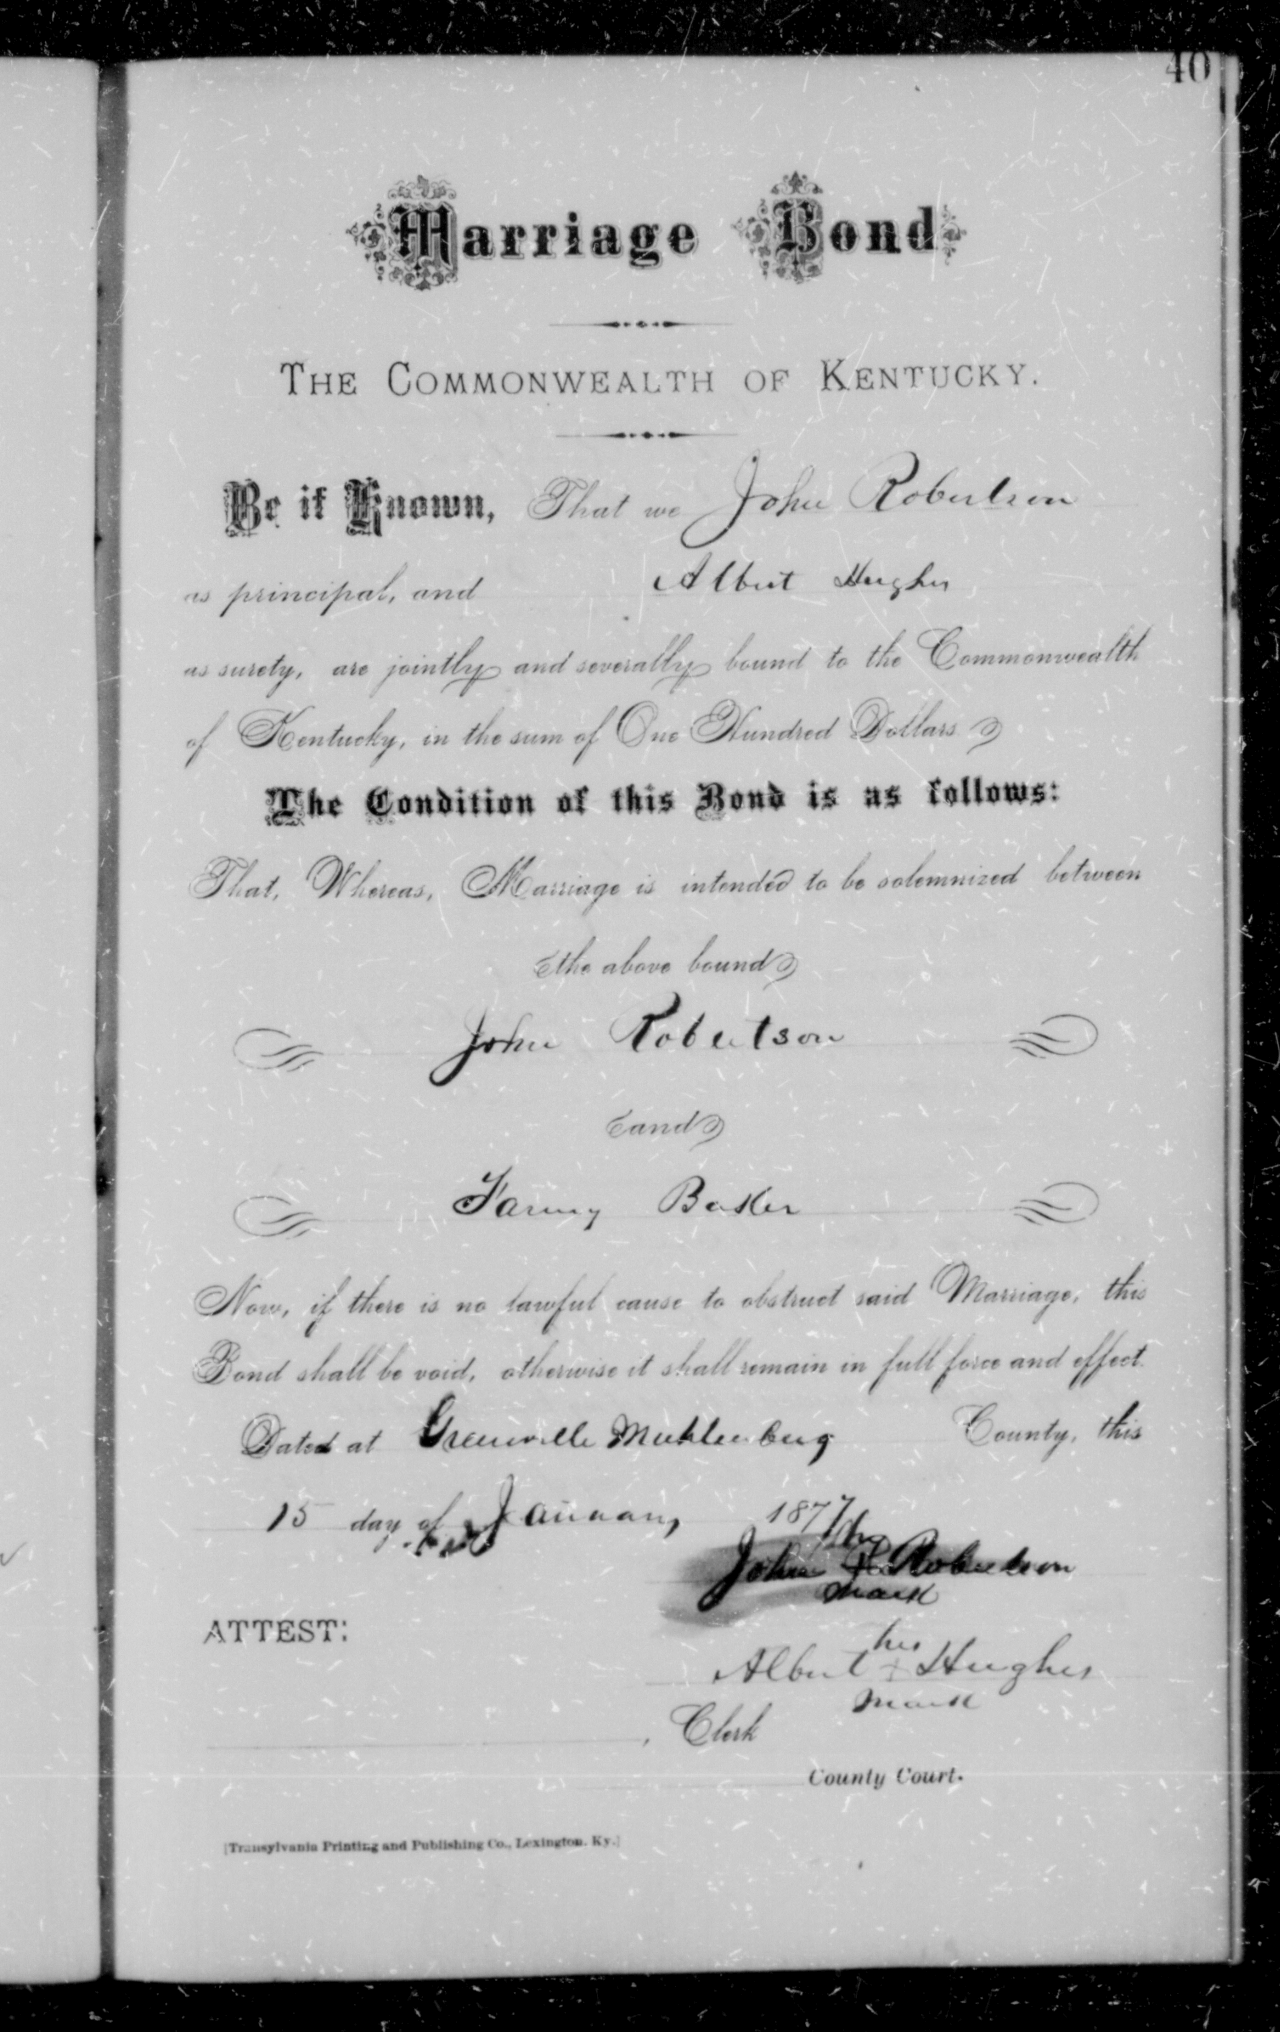 40
Marriage Bond
THE COMMONWEALTH OF KENTUCKY.
Be it Known, That we John Robertson
as principal, and Albert Hughes
as surety, are jointly and severally bound to the Commonwealth
of Kentucky, in the sum of One Hundred Dollars
The Condition of this Bond is as follows:
That, Whereas, Marriage is intended to be solemnized between
the above bound
John Robertson
and
Fanny
Now, if there is no lawful cause to obstruct said Marriage, this
Bond shall be void, otherwise it shall remain in full force and effect.
Dated at Greenville Muhlenberg County, this
15 day of January 1877
his
John Robertson
mark
ATTEST:
his
Albert + Hughes
mark
, Clerk
County Court.
[Transylvania Printing and Publishing Co., Lexington, Ky.]